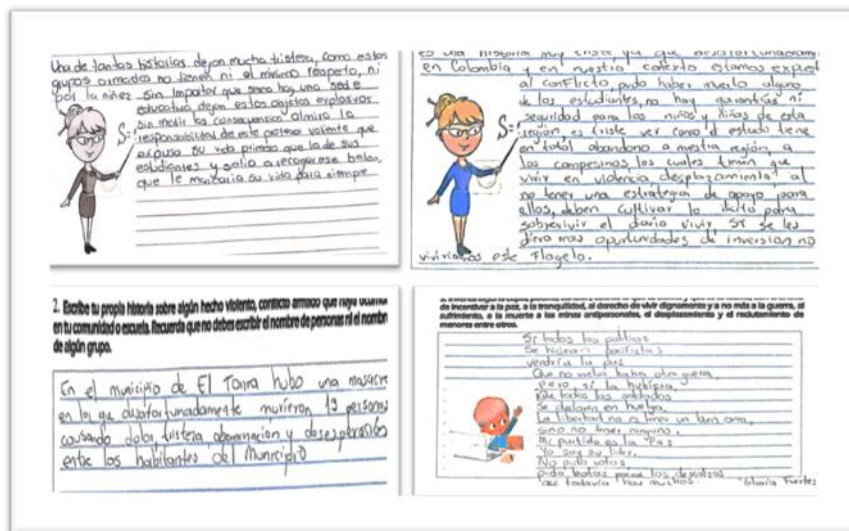 Una de tantas historias dejan mucha tristeza, como estos
grupos armados no tienen ni el mínimo respeto, ni
por la niñez sin importar que saca hay una sede
educativa dejan estos objetos explosivos
sin medir las consecuencias almiro la
responsabilidad de este profesor valiente que
expuso su vida primero que la de sus
estudiantes y salio a recoger ese balon,
que le marcaria su vida para siempre
S=
es una historia muy triste ya que desafortunadam
en Colombia y en nuestro contexto estamos expuest
al conflicto, pudo haber muerto alguno
de los estudiantes, no hay garantías ni
seguridad para los niños y niñas de esta
región, es triste ver como el estado tiene
en total abandono a nuestra región, a
los campesinos los cuales tienen que
vivir en violencia desplazamiento al
no tener una estrategia de apoyo para
ellos, deben cultivar lo ilicito para
sobrevivir el diario vivir si se les
diera mas oportunidades de inversion no
viviriamos este flagelo.
S=
2. Escribe tu propia historia sobre algún hecho violento, conflicto armado que haya ocurrido
en tu comunidad o escuela. Recuerda que no debes escribir el nombre de personas ni el nombre
de algún grupo.
En el municipio de El Tarra hubo una masacre
en la que desafortunadamente murieron 13 personas
causando dolor, tristeza abominación y desesperación
entre los habitantes del Municipio
de incentivar a la paz, a la tranquilidad, al derecho de vivir dignamente y a no más a la guerra, al
sufrimiento, a la muerte a las minas antipersonales, el desplazamiento y el reclutamiento de
menores entre otros.
Si todos los politicos
Se hicieran pacifistas
vendria la paz
Que no vuelva haber otra guerra,
pero si la hubiera,
Que todos los soldados
Se declaren en huelga.
La libertad no es tener un buen amo,
sino no tener ninguno.
Mi partido es la Paz
Yo soy su lider.
No pido votos
pido botas para los descalzos
que todavia hay muchos. "Gloria Fuertes